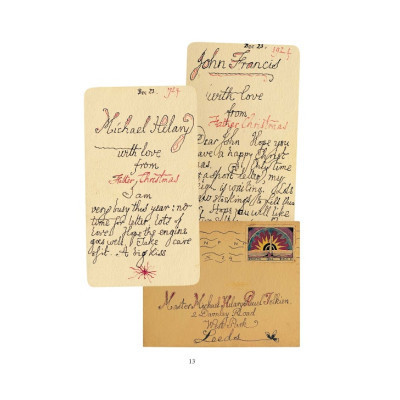 Dec 23. 1924
Michael Hilary
with love
from
Father Christmas
I am
very busy this year: no
time for letter. Lots of
love. Hope the engine
goes well. Take care
of it. A big kiss
Dec 23. 1924
John Francis
with love
from
Father Christmas
Dear John Hope you
have a happy Christ
mas. Only time
for a short letter, my
sleigh is waiting. Lots
new stockings to fill this
Hope you will like
Master Michael Hilary Reuel Tolkien
2 Darnley Road
West Park
Leeds
13